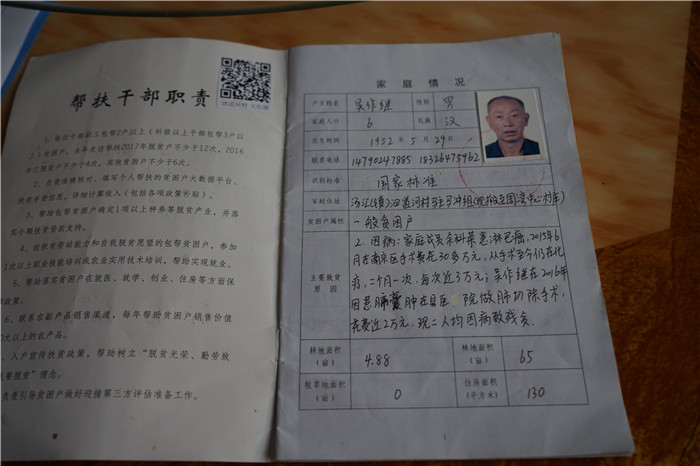 帮扶干部职责
1、每名干部职工包帮2户以上（科级以上干部包帮3户以
上）贫困户，全年走访帮扶2017年脱贫户不少于12次，2016
年已脱贫户不少于4次，其他贫困户不少于6次。
2、负责准确核对、填写个人帮扶的贫困户大数据平台、
扶贫手册信息，详细计算收入（包括各项政策补贴）。
3、帮助包帮贫困户确定1项以上种养等脱贫产业，并落
实小额扶贫贷款支持。
4、组织有劳动能力和自我脱贫愿望的包帮贫困户，参加
1次以上职业技能培训或农业实用技术培训，帮助实现就业。
5、帮助落实贫困户在就医、就学、创业、住房等方面保
障政策。
6、联系农副产品销售渠道，每年帮助贫困户销售价值
0元以上的农产品。
入户宣传扶贫政策，帮助树立“脱贫光荣、勤劳致
我要脱贫”理念。
负责引导贫困户做好迎接第三方评估准备工作。
家庭情况
户主姓名 吴作继 性别 男
家庭人口 6 民族 汉
出生时间 1952年5月29日
联系电话 14790247885 18326475962
识别标准 国家标准
家庭住址
贫困户属性 一般贫困户
主要致贫原因
2、因病：家庭成员余科荣患淋巴癌，2015年6
月在南京医手术费在30多万元，从手术至今仍在化
疗，二个月一次，每次近3万元；吴作继在2016年
因患肺囊肿在县医院做肺切除手术，
花费近2万元。现二人均因病致残贫。
耕地面积（亩） 4.88 林地面积（亩） 65
牧草地面积（亩） 0 住房面积（平方米） 130